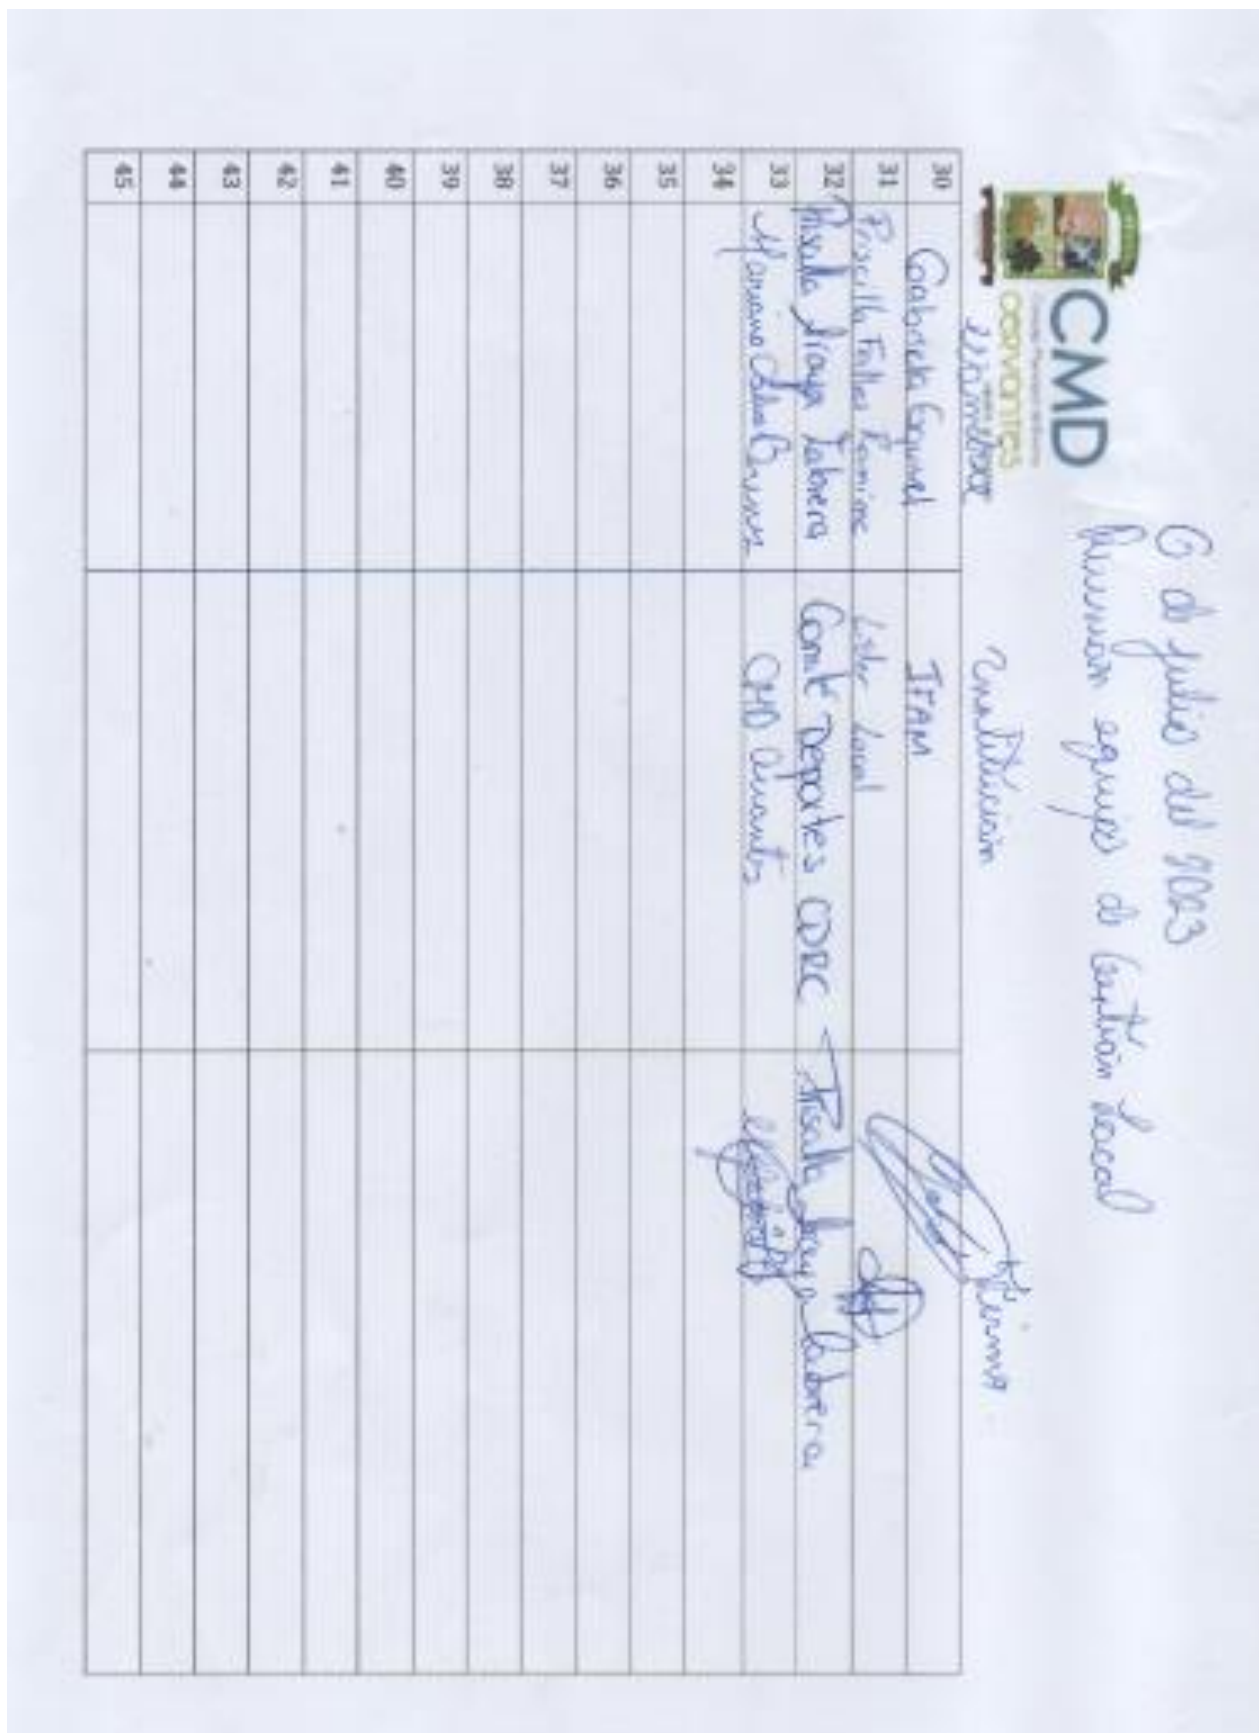 6 de julio del 2023
Reunion equipo de Gestión Local
CMD
CERVANTES
Nombre Institución Firma
30 Gabriela IFAM
31 Priscilla Fallas Ramírez Líder Local
32 Rosalía Araya Cabrera Comité Deportes CDRC Rosalía Araya Cabrera
33 Mariano CMD Cervantes
34
35
36
37
38
39
40
41
42
43
44
45